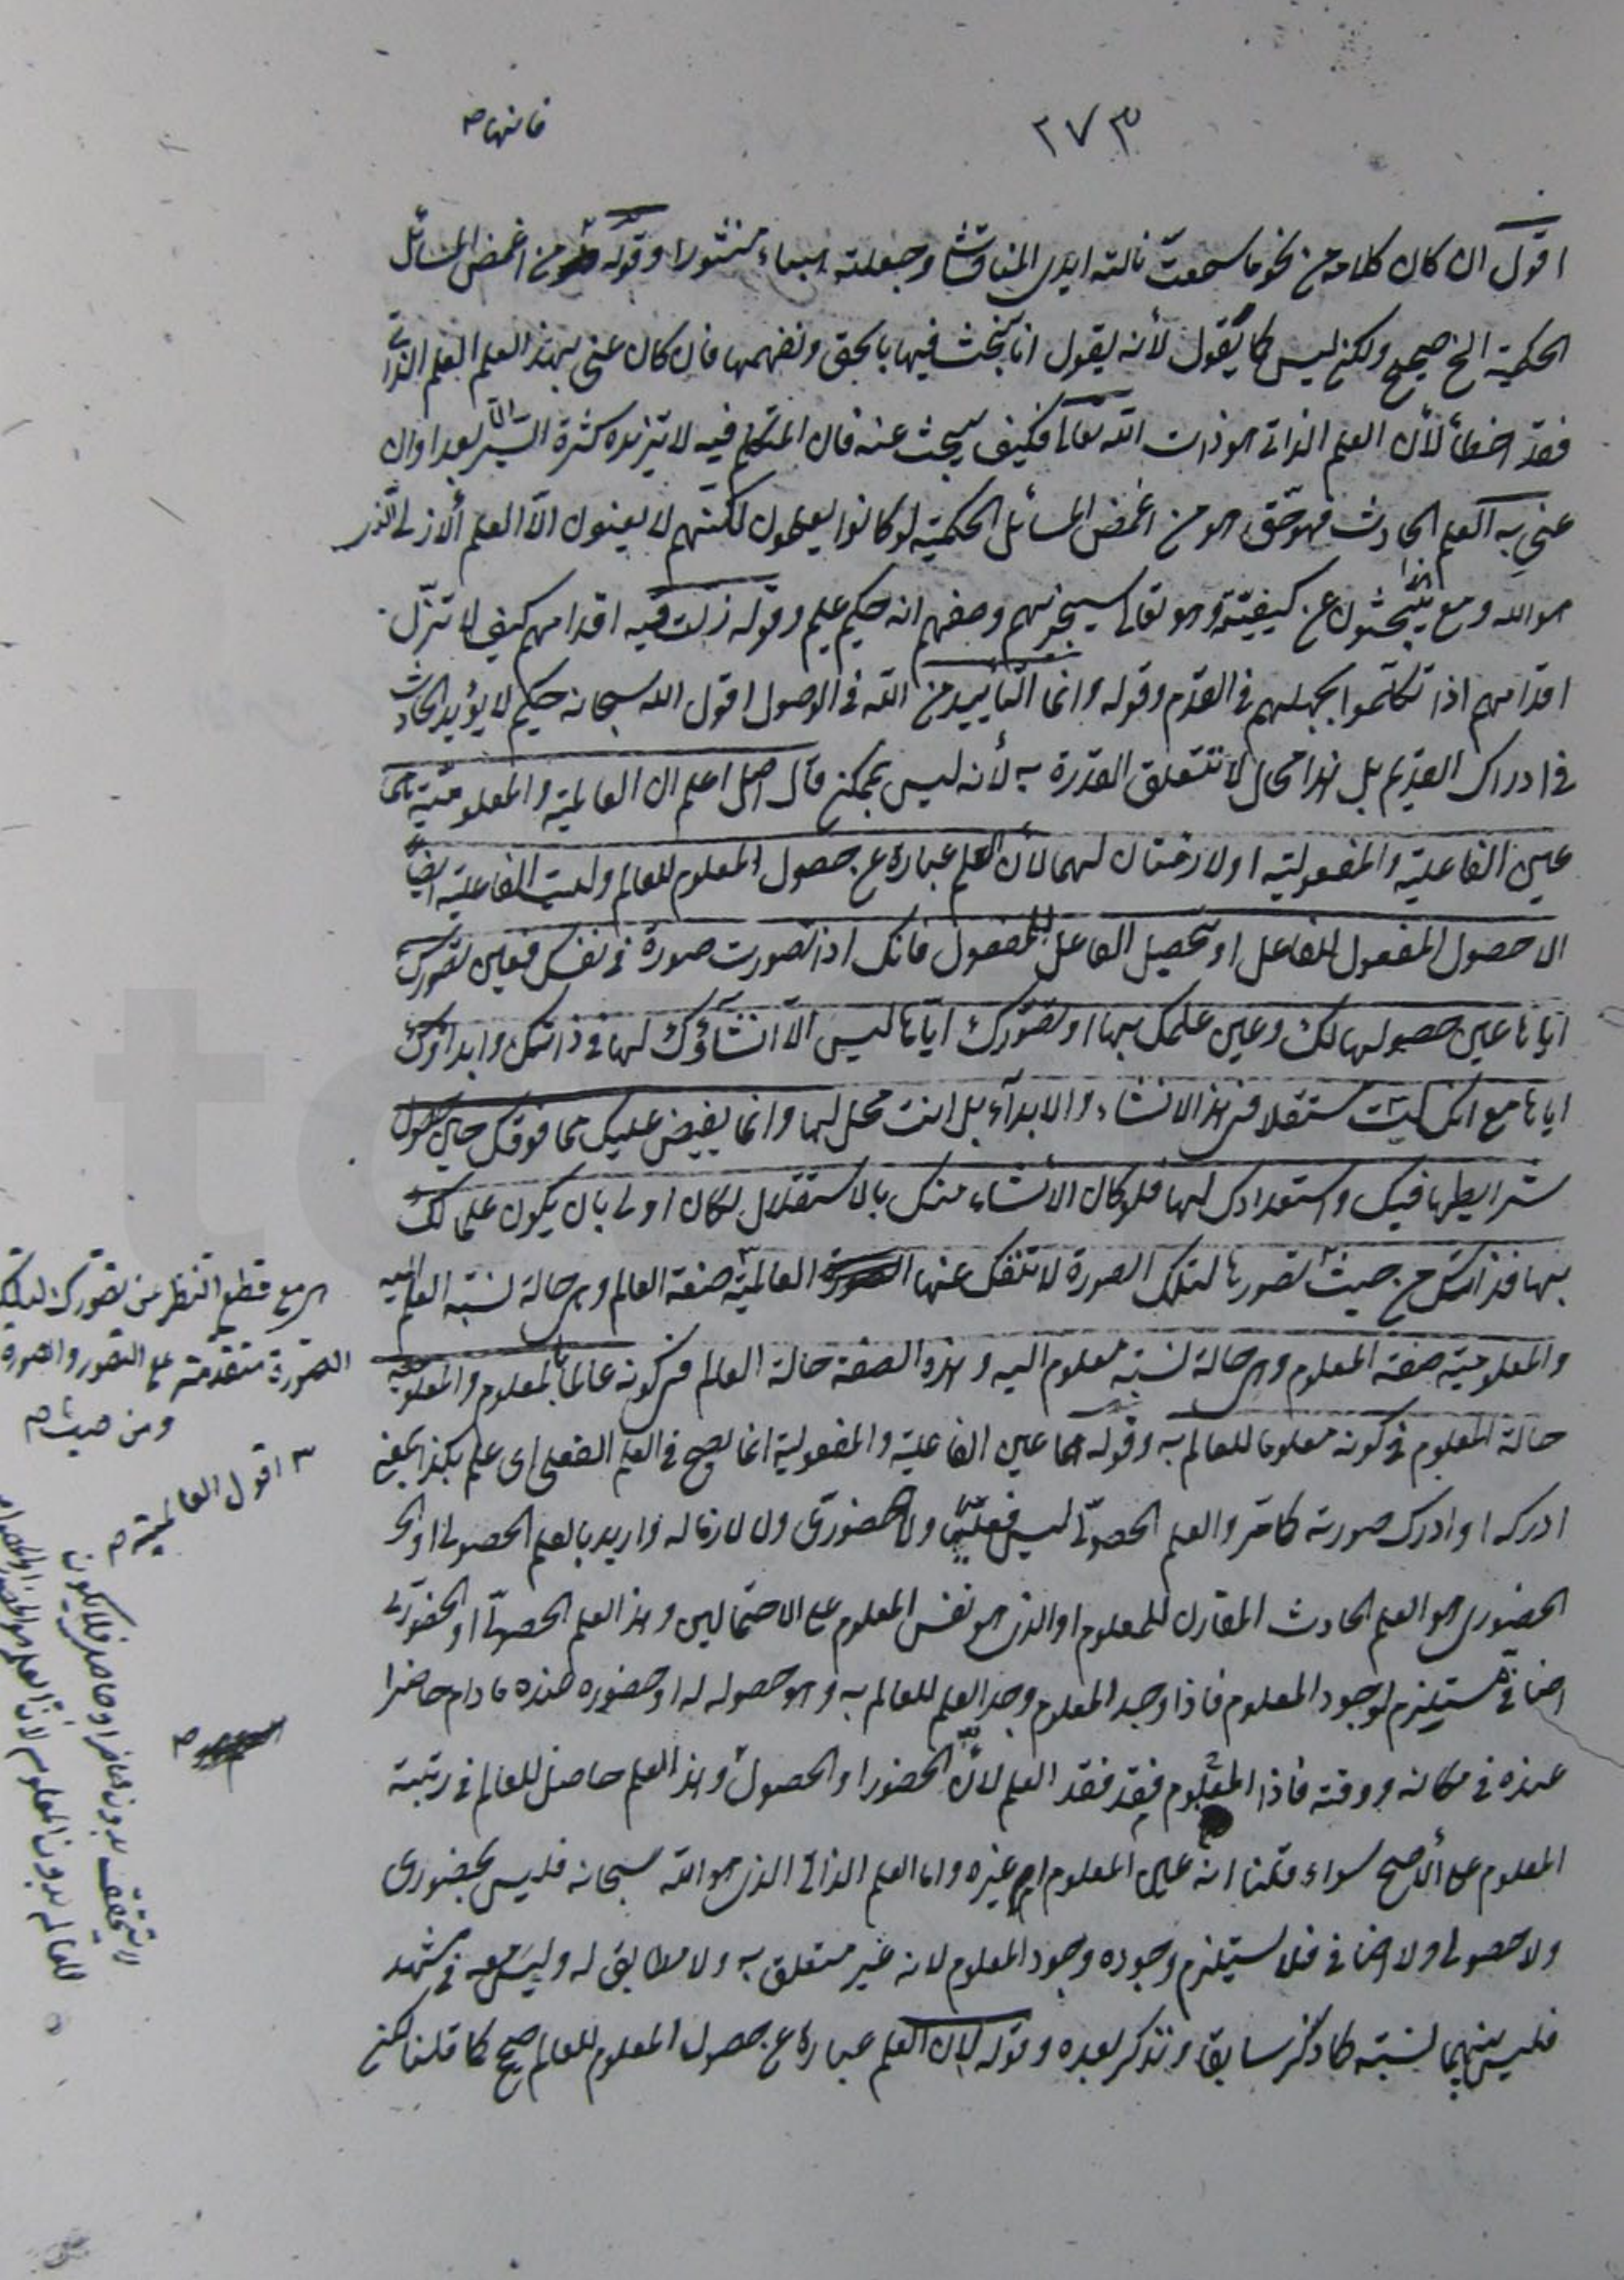 فانها ص
٢٧٣
اقول ان كان كلامه من نحو ما سمعت نالته ايدى المناقشة وجعلته هباء منثورا وقوله هو من اغمض المسائل
الحكمية الخ صحيح ولكن ليس كما يقول لأنه يقول انا نبحث فيها بالحق ونفهمها فان كان عنى بهذا العلم العلم الذاتى
فقد اخطأ لأن العلم الذاتى هو ذات الله تعالى فكيف يبحث عنه فان المتكلم فيه لا تزيده كثرة السير الا بعدا وان
عنى به العلم الحادث فهو حق هو من اغمض المسائل الحكمية لو كانوا يعلمون لكنهم لا يعنون الا العلم الأزلى الذى
هو الله ومع هذا يبحثون عن كيفيته وهو تعالى سيجزيهم وصفهم انه حكيم عليم وقوله زلت فيه اقدامهم كيف لا تزل
اقدامهم اذا تكلموا بجهلهم فى القدم وقوله وانما التأييد من الله فى الوصول اقول الله سبحانه حكيم لا يؤيد الحادث
فى ادراك القديم بل هذا محال لا تتعلق القدرة به لأنه ليس بممكن قال اصل اعلم ان العالمية والمعلومية هما
عين الفاعلية والمفعولية او لازمتان لهما لأن العلم عبارة عن حصول المعلوم للعالم وليست الفاعلية ايضا
الا حصول المفعول للفاعل او تحصيل الفاعل للمفعول فانك اذا تصورت صورة فى نفسك فعين تصورك
اياها عين حصولها لك وعين علمك بها او تصورك اياها ليس الا انشاؤك لها فى ذاتك وابداؤك
اياها مع انك لست مستقلا فى هذا الانشاء والابداء بل انت محل لها وانما يفيض عليك مما فوقك حين حصول
شرايطها فيك واستعدادك لها فلو كان الانشاء منك بالاستقلال لكان اولى بان يكون علما لك
بها فذاتك من حيث تصورها لتلك الصورة لا تنفك عنها العالمية صفة العالم وهى حالة نسبة العلم اليه
والمعلومية صفة المعلوم وهى حالة نسبة معلوم اليه وهذه الصفة حالة العالم فى كونه عالما بالمعلوم والمعلومية
حالة المعلوم فى كونه معلوما للعالم به وقوله هما عين الفاعلية والمفعولية انما يصح فى العلم الفعلى اى علم بكذا بمعنى
ادركه او ادرك صورته كما مر والعلم الحصولى ليس فعليا ولا حضورى ولا لازما له واريد بالعلم الحصولى او
الحضورى هو العلم الحادث المقارن للمعلوم او الذى هو نفس المعلوم على الاحتمالين وهذا العلم الحصولى او الحضورى
اضافى مستلزم لوجود المعلوم فاذا وجد المعلوم وجد العلم للعالم به وهو حصوله له او حضوره عنده ما دام حاضرا
عنده فى مكانه ووقته فاذا المعلوم فقد فقد العلم لأنه الحضور او الحصول وهذا العلم حاصل للعالم فى رتبة
المعلوم على الأصح سواء قلنا انه عين المعلوم ام غيره واما العلم الذاتى الذى هو الله سبحانه فليس بحضورى
ولا حصولى ولا اضافى فلا يستلزم وجوده وجود المعلوم لانه غير متعلق به ولا مطابق له وليس معه فى مشهد
فليس بينهما نسبة كما ذكر سابقا ونذكر بعده وقوله لان العلم عبارة عن حصول المعلوم للعالم صحيح كما قلنا لكن
مع قطع النظر عن تصورك لتلك
الصورة متقدمة على التصور والصورة
ومن حيث ص
٣ اقول العالمية ص
لا تتحقق بدون حاضر او حاصل فلا يكون
للعالم بدون المعلوم لان العلم هو